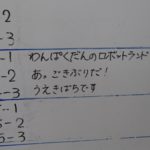 2
-3
-1 わんぱくだんのロボットランド
-2 あ。ごきぶりだ!
-3 うえきばちです
-1
5-2
5-3